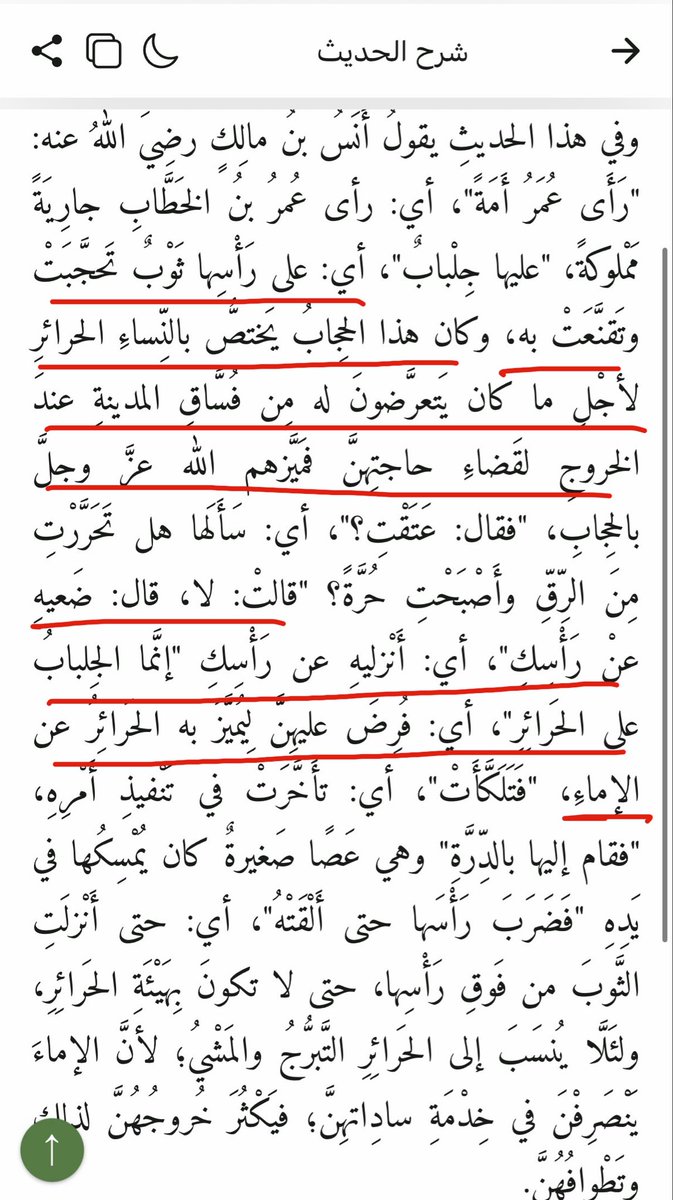 شرح الحديث
وفي هذا الحديثِ يقولُ أَنَسُ بنُ مالِكٍ رضِيَ اللهُ عنه:
"رَأَى عُمَرُ أَمَةً"، أي: رأى عُمرُ بنُ الخَطَّابِ جارِيَةً
مَمْلوكةً، "عليها جِلْبابٌ"، أي: على رَأْسِها ثَوْبٌ تَحَجَّبَتْ
وتَقنَّعَتْ به، وكان هذا الحِجابُ يَختصُّ بالنِّساءِ الحرائرِ
لأجْلِ ما كان يَتعرَّضونَ له مِن فُسَّاقِ المدينةِ عندَ
الخروجِ لقَضاءِ حاجتِهنَّ فمَيَّزهم الله عزَّ وجلَّ
بالحِجابِ، "فقال: عَتَقْتِ؟"، أي: سَأَلَها هل تَحَرَّرْتِ
مِنَ الرِّقِّ وأَصْبَحْتِ حُرَّةً؟ "قالتْ: لا، قال: ضَعيهِ
عنْ رَأْسِكِ"، أي: أَنْزليهِ عن رَأْسِكِ "إنَّما الجِلبابُ
على الحَرائرِ"، أي: فُرِضَ عليهِنَّ ليُمَيَّزَ به الحَرائرُ عن
الإماءِ، "فَتَلَكَّأَتْ"، أي: تأخَّرَتْ في تَنْفيذِ أَمْرِهِ،
"فقام إليها بالدِّرَّةِ" وهي عَصًا صَغيرةٌ كان يُمْسِكُها في
يَدِهِ "فَضَرَبَ رَأْسَها حتى أَلْقَتْهُ"، أي: حتى أَنْزلَتِ
الثَّوبَ من فَوقِ رَأْسِها، حتى لا تكونَ بِهَيْئَةِ الحَرائِرِ،
ولئَلَّا يُنسَبَ إلى الحَرائِرِ التَّبرُّجُ والمَشْيُ؛ لأنَّ الإماءَ
يَنْصَرِفْنَ في خِدْمَةِ ساداتِهنَّ؛ فيَكْثُرَ خُروجُهُنَّ لذلك
وتَطْوافُهُنَّ.